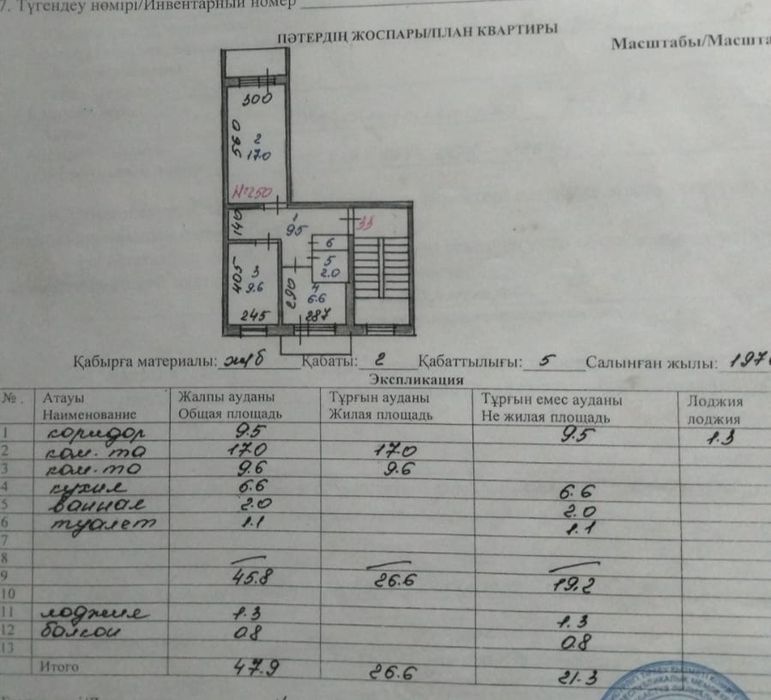 7. Түгендеу нөмірі/Инвентарный номер
ПӘТЕРДІҢ ЖОСПАРЫ/ПЛАН КВАРТИРЫ
Масштабы/Масшта
300
560
2
17.0
№250
140
1
9.5
33
6
5
2.0
405
3
9.6
290
4
6.6
245
287
Қабырға материалы: ж/б Қабаты: 2 Қабаттылығы: 5 Салынған жылы: 197
Экспликация
№ Атауы Жалпы ауданы Тұрғын ауданы Тұрғын емес ауданы Лоджия
Наименование Общая площадь Жилая площадь Не жилая площадь лоджия
1 коридор 9.5 9.5 1.3
2 ком-та 17.0 17.0
3 ком-та 9.6 9.6
4 кухня 6.6 6.6
5 ванная 2.0 2.0
6 туалет 1.1 1.1
7
8
9 45.8 26.6 19.2
10
11 лоджия 1.3 1.3
12 балкон 0.8
13 0.8
Итого 47.9 26.6 21.3